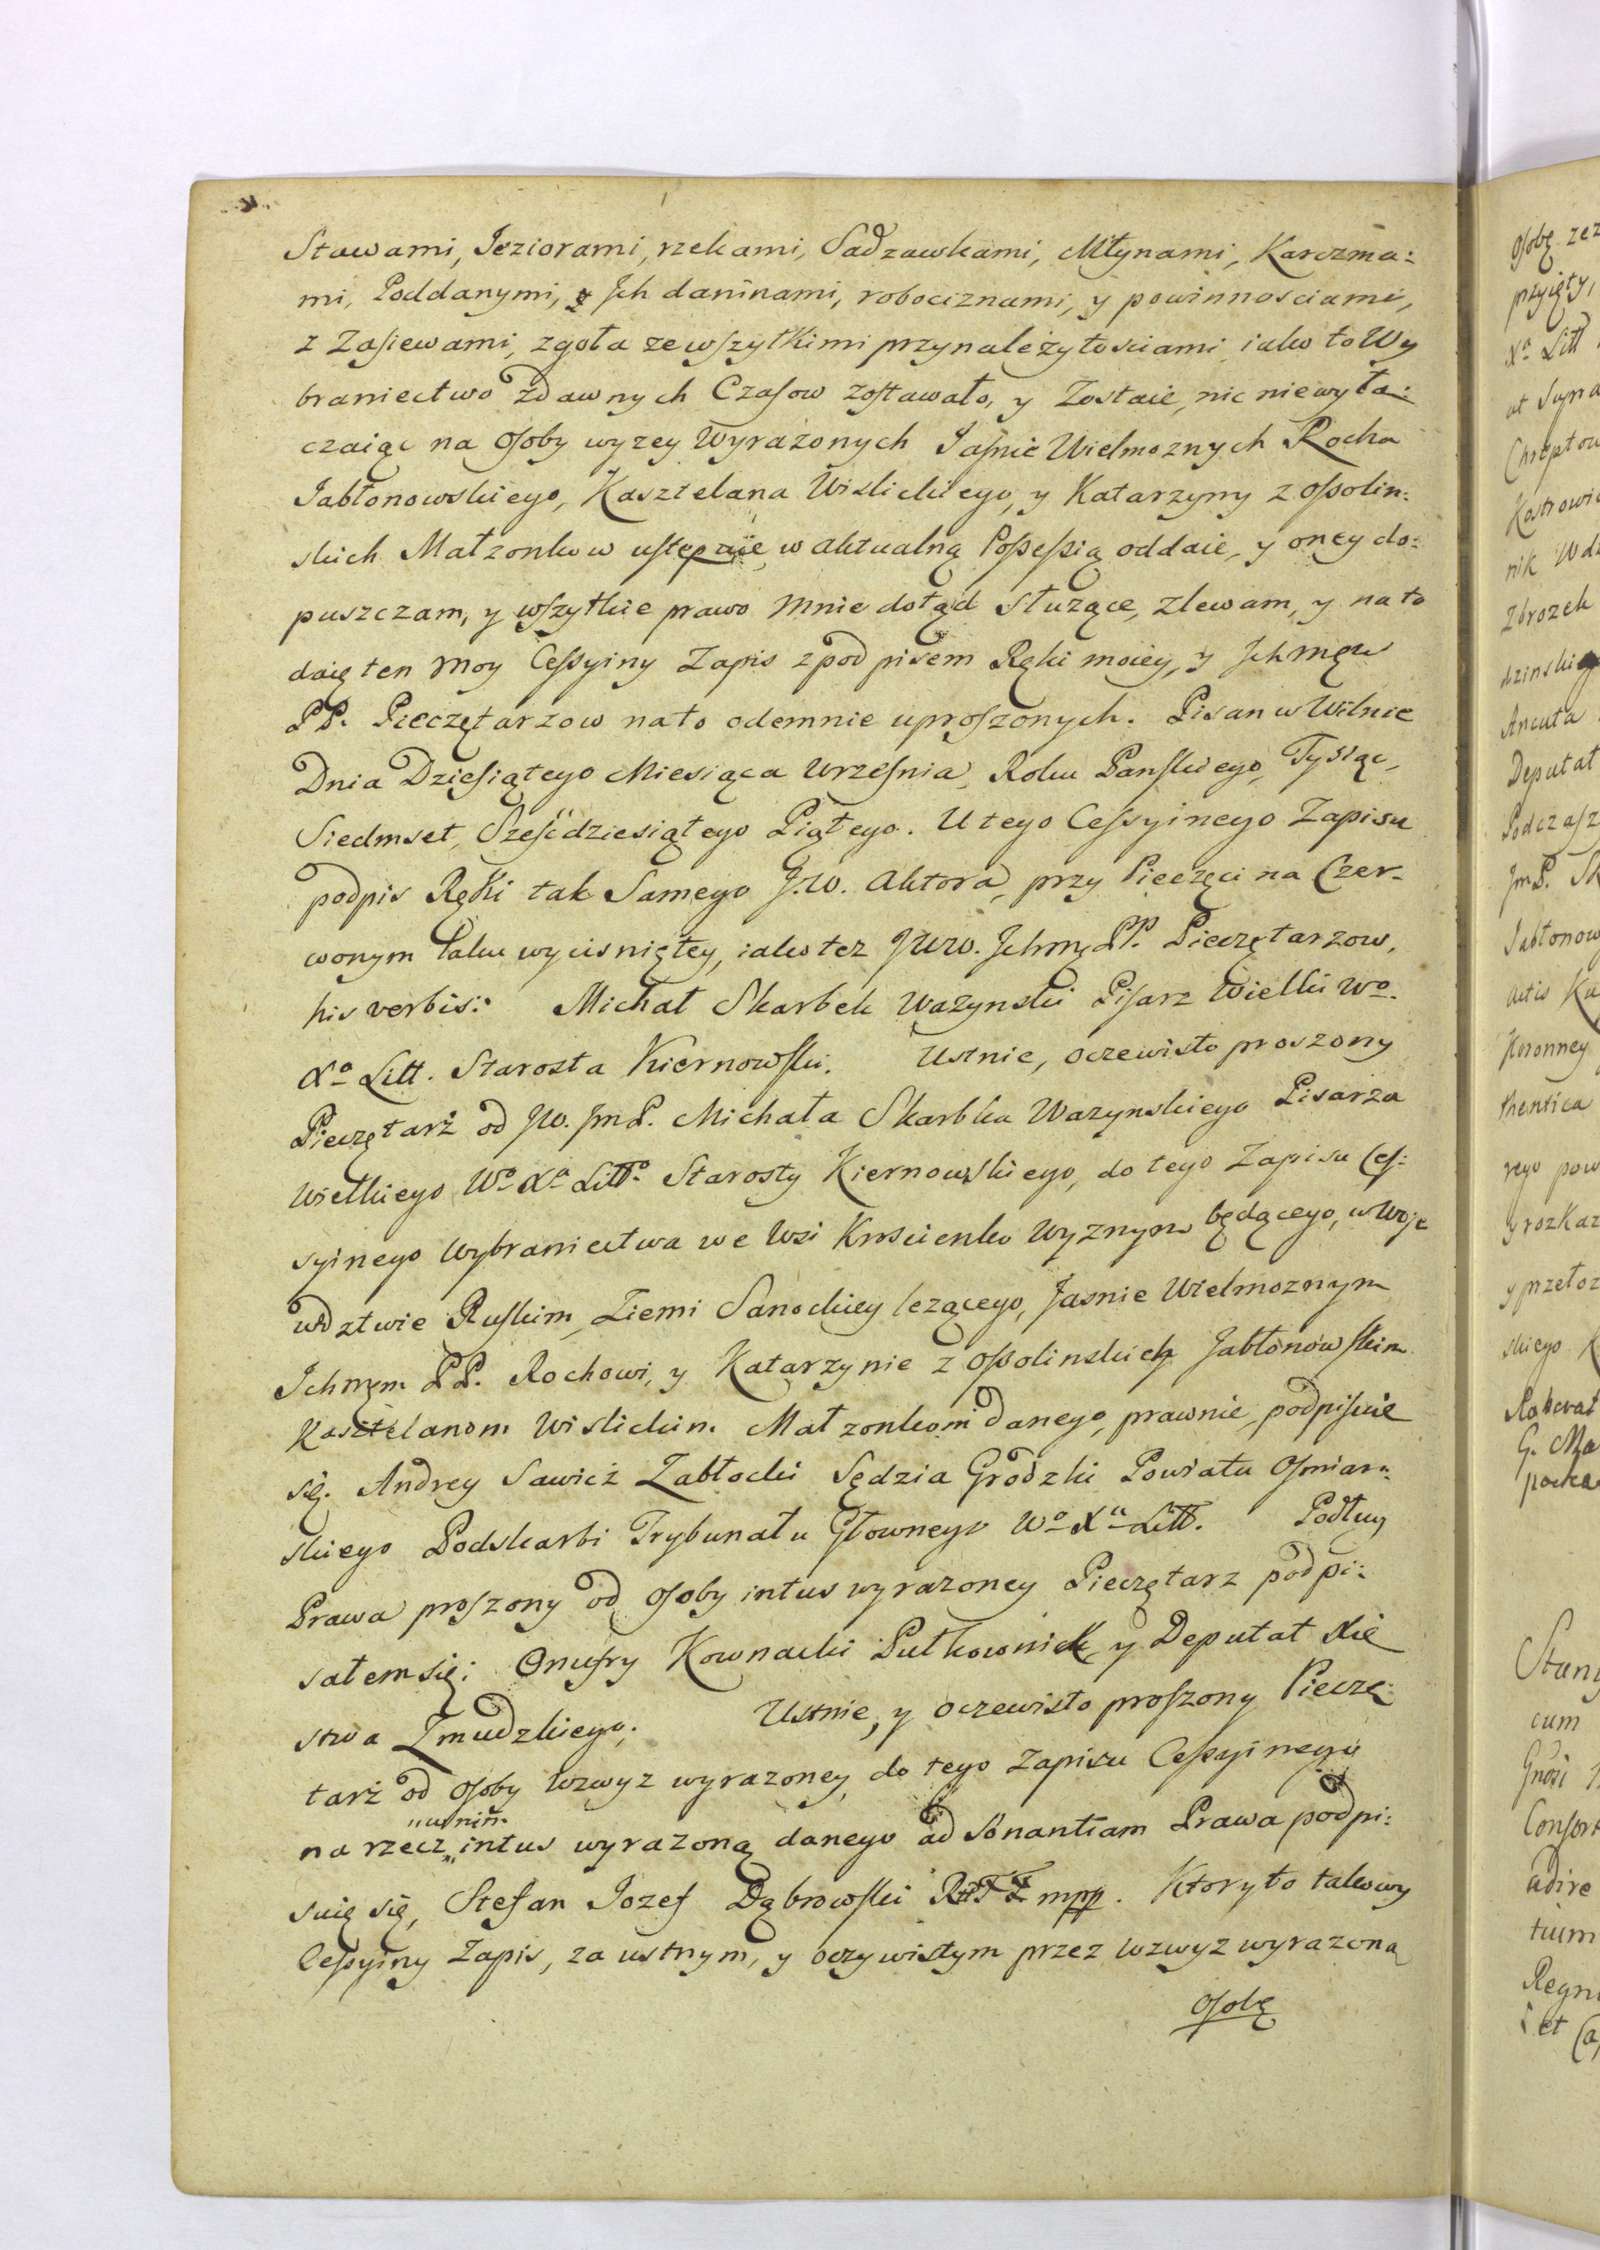 Stawami, Jeziorami, rzekami, Sadzawkami, Młynami, Karczma:
mi, Poddanymi, y Jch daninami, robociznami, y powinnosciami,
z Zasiewami, zgoła ze wszytkimi przynależytosciami iako to Wy
braniectwo zdawnych Czasow zostawało, y Zostaie, nic niewyła:
czaiąc na Osoby wyzey Wyrażonych Jasnie Wielmoznych Rocha
Jabłonowskiego, Kasztelana Wislickiego, y Katarzyny z Ossolin:
skich Małzonkow ustępuię, w aktualną Possessią oddaie, y oney do:
puszczam, y wszytkie prawo mnie dotąd słuzące, zlewam, y na to
daię ten moy Cessyiny Zapis z podpisem Ręki moiey, y Jchmęw
PP. Pieczętarzow nato odemnie uproszonych. Pisan w Wilnie
Dnia Dziesiątego Miesiąca Wrzesnia, Roku Panskiego, Tysiąc,
Siedmset, Szesćdziesiątego Piątego. U tego Cessyinego Zapisu
podpis Ręki tak Samego J.W. Aktora, przy Pieczęci na Czer-
wonym laku wycisniętey, iako tez JWW. Jchmę PP. Pieczętarzow,
his verbis: Michał Skarbek Wazynski Pisarz Wielki Wo.
Xa Litt. Starosta Kiernowski. Ustnie, oczewisto proszony
Pieczętarz od JW. JmP. Michała Skarbka Wazynskiego Pisarza
Wielkiego Wo Xa Litto Starosty Kiernowskiego, do tego Zapisu Ces:
syinego Wybraniectwa we Wsi Kroscienko Wyznym będącego, w Woje
wdztwie Ruskim, Ziemi Sanockiey lezącego, Jasnie Wielmoznym
Jchmęm PP. Rochowi, y Katarzynie z Ossolinskich Jabłonowskim
Kasztelanom Wislickim. Małzonkom danego, prawnie podpisuie
się. Andrey Sawicz Zabłocki Sędzia Grodzki Powiatu Osmian:
skiego Podskarbi Trybunału Głownego Wo Xa Litt. Podług
Prawa proszony od Osoby intus wyrazoney Pieczętarz podpi:
sałem się: Onufry Kownacki Pułkownik y Deputat Xię
stwa Zmudzkiego. Ustnie, y oczewisto proszony Pieczę:
tarz od Osoby wzwyz wyrazoney, do tego Zapisu Cessyinego
na rzecz intus wyrazoną danego ad Sonantiam Prawa podpi:
suię się, Stefan Jozef Dąbrowski mpp. Ktoryto takowy
Cessyiny Zapis, za ustnym, y oczywistym przez wzwyz wyrazoną
Osobę